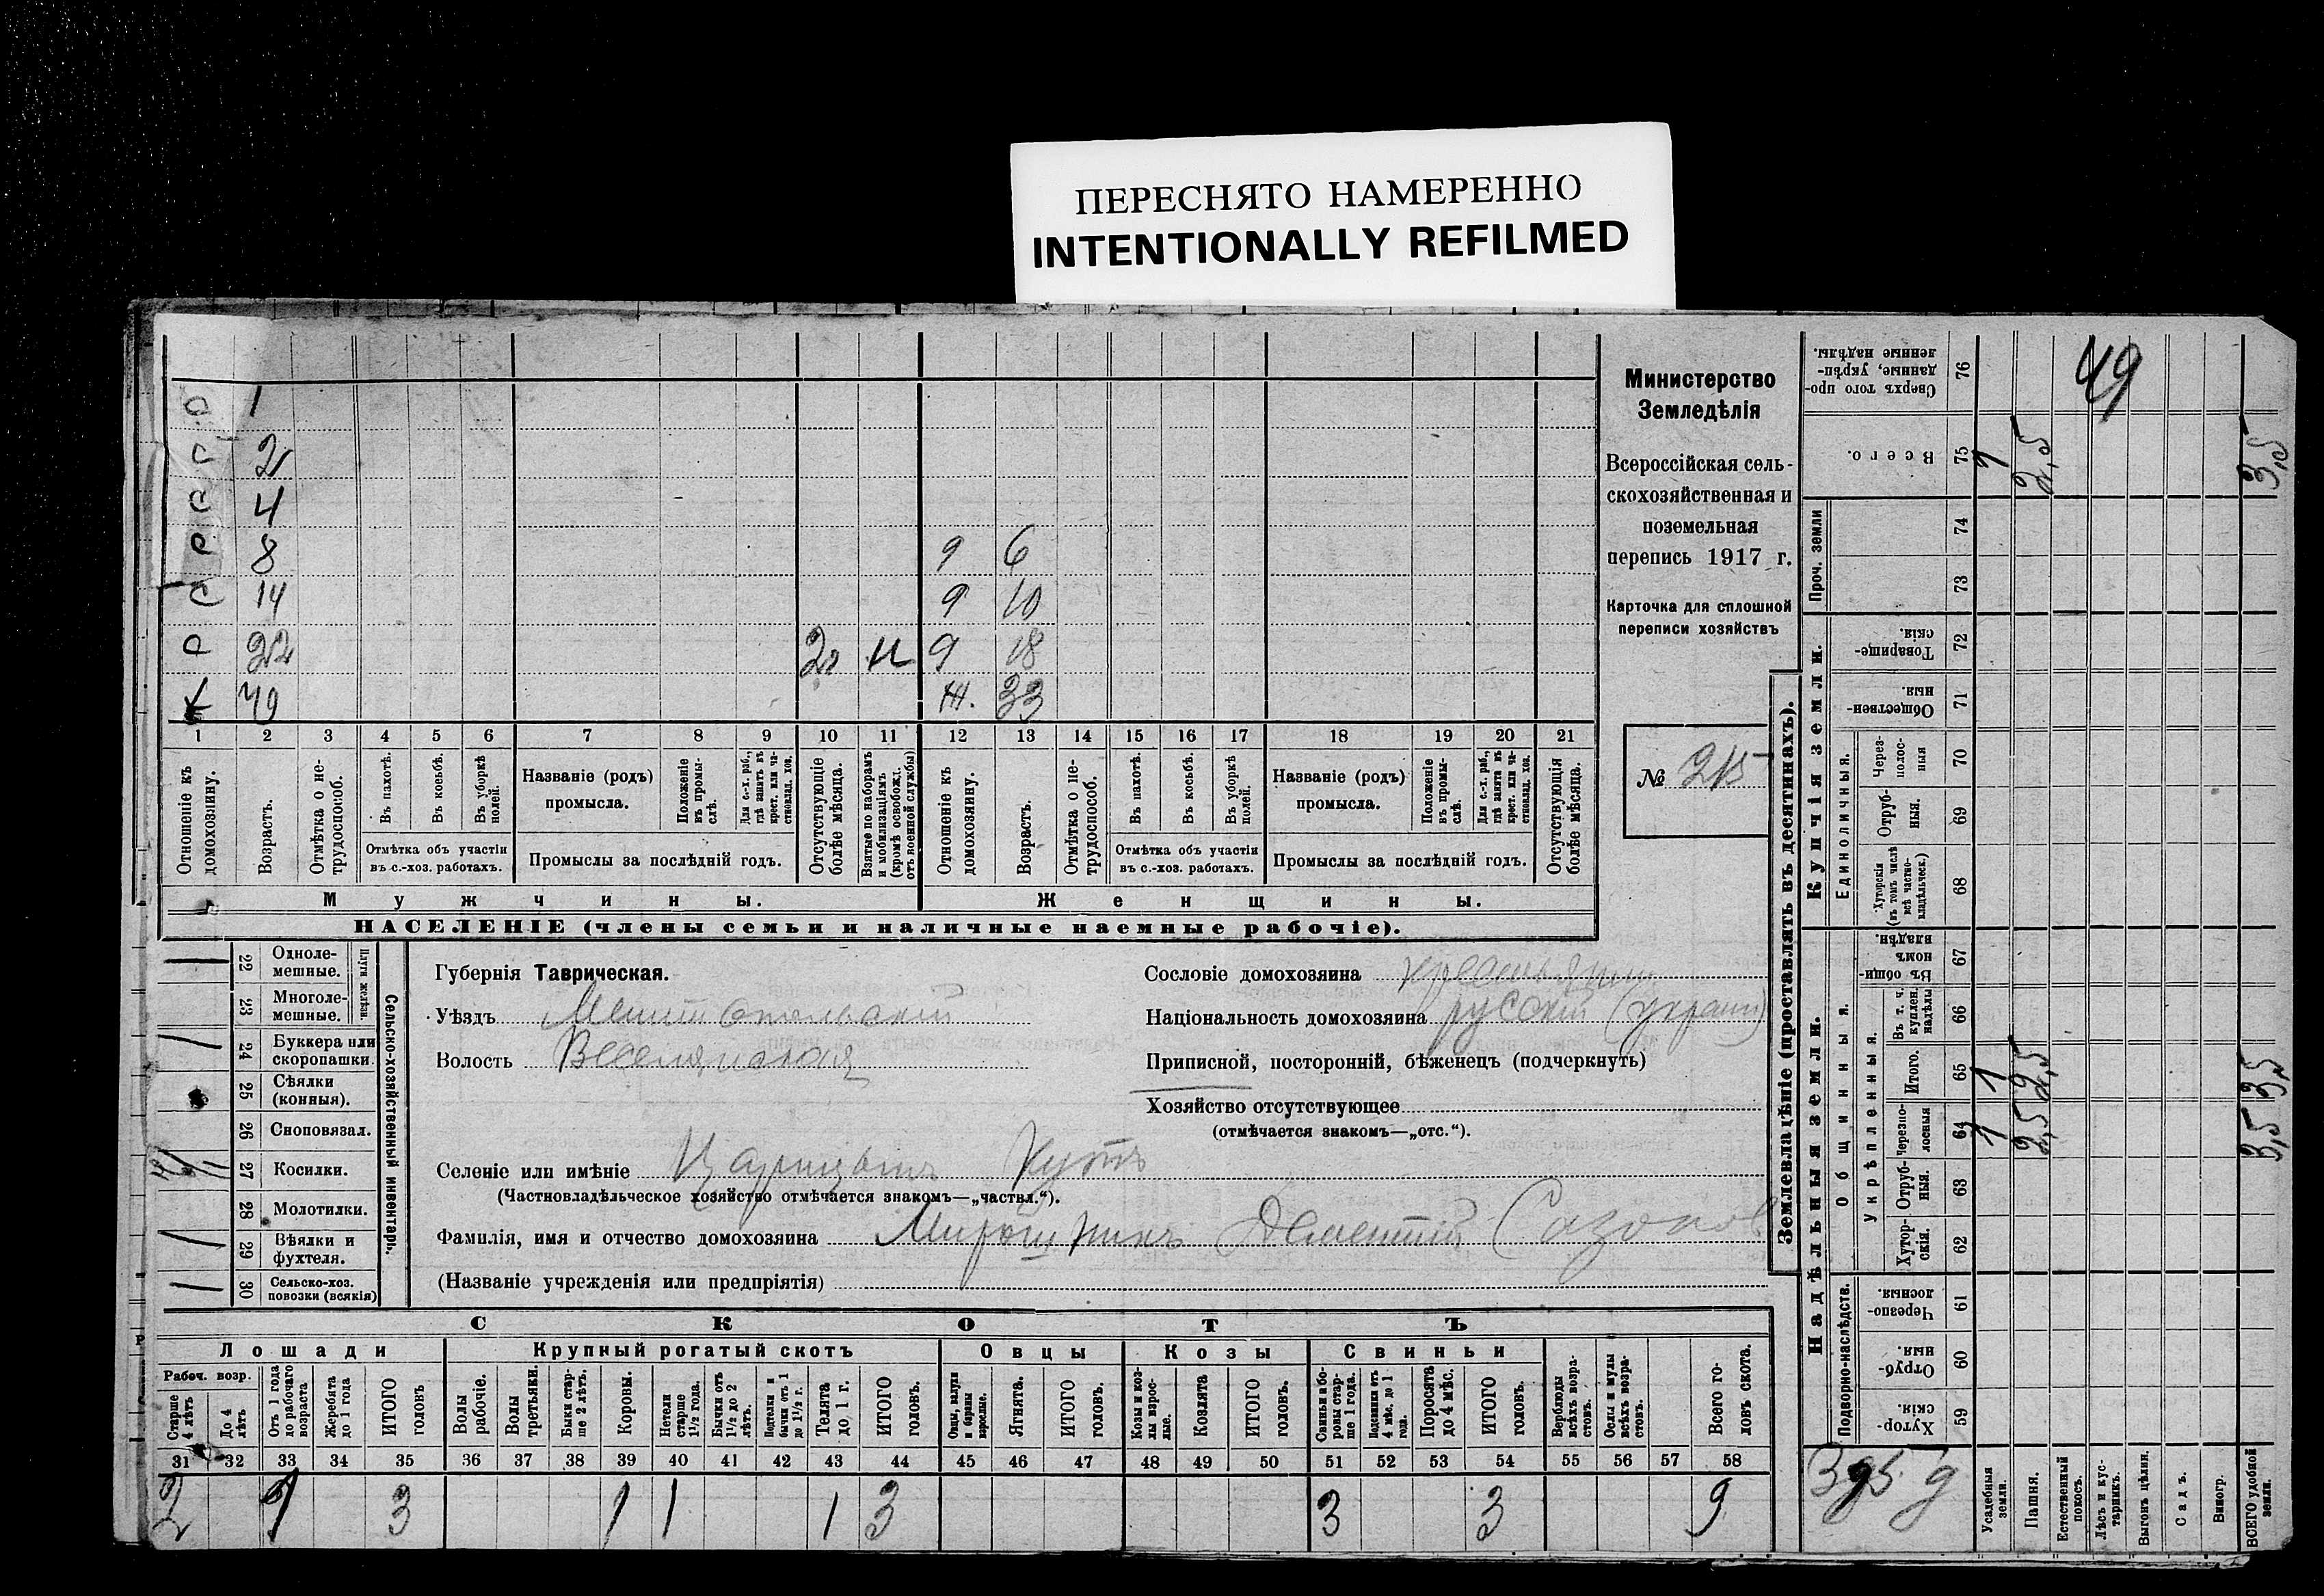 ПЕРЕСНЯТО НАМЕРЕННО
INTENTIONALLY REFILMED
Министерство
Земледѣлія
Всероссійская сель-
скохозяйственная и
поземельная
перепись 1917 г.
Карточка для сплошной
переписи хозяйствъ
№ 215
С 1
С 2
С 4
С 8 9 6
С 14 9 10
С 22 9 18
Х 49 Ж. 33
1 2 3 4 5 6 7 8 9 10 11 12 13 14 15 16 17 18 19 20 21
Отношеніе къ домохозяину.
Возрастъ.
Отмѣтка о не-трудоспособ.
Въ пахотѣ.
Въ косьбѣ.
Въ уборкѣ полей.
Отмѣтка объ участіи
въ с.-хоз. работахъ.
Названіе (родъ)
промысла.
Положеніе въ промы-слѣ.
Для с.-х. раб., гдѣ занятъ въ крест. или ча-стновлад. хоз.
Промыслы за послѣдній годъ.
Отсутствующіе болѣе мѣсяца.
Взятые по наборамъ и мобилизаціямъ (кромѣ освобожд. отъ военной службы)
Отношеніе къ домохозяину.
Возрастъ.
Отмѣтка о не-трудоспособ.
Въ пахотѣ.
Въ косьбѣ.
Въ уборкѣ полей.
Отмѣтка объ участіи
въ с.-хоз. работахъ.
Названіе (родъ)
промысла.
Положеніе въ промы-слѣ.
Для с.-х. раб., гдѣ занята въ крест. или ча-стновлад. хоз.
Промыслы за послѣдній годъ.
Отсутствующія болѣе мѣсяца.
Мужчины. Женщины.
НАСЕЛЕНІЕ (члены семьи и наличные наемные рабочіе).
Сельско-хозяйственный инвентарь.
Плуги желѣзн.
22 Одноле-мешные.
23 Многоле-мешные.
24 Буккера или скоропашки.
25 Сѣялки (конныя).
26 Сноповязал.
27 Косилки.
28 Молотилки.
29 Вѣялки и фухтеля.
30 Сельско-хоз. повозки (всякія)
Губернія Таврическая.
Уѣздъ Мелитопольскій
Волость Веселянская
Сословіе домохозяина крестьянин
Національность домохозяина русскій (украин)
Приписной, посторонній, бѣженецъ (подчеркнуть)
Хозяйство отсутствующее
(отмѣчается знакомъ—„отс.“).
Селеніе или имѣніе Царицынъ Кутъ
(Частновладѣльческое хозяйство отмѣчается знакомъ—„частвл.“).
Фамилія, имя и отчество домохозяина Мирошникъ Дементій Сазонов
(Названіе учрежденія или предпріятія)
СКОТЪ
Лошади Крупный рогатый скотъ Овцы Козы Свиньи
Рабоч. возр.
Старше 4 лѣтъ
До 4 лѣтъ
Отъ 1 года до рабочаго возраста
Жеребята до 1 года
ИТОГО головъ
Волы рабочіе.
Волы третьяки.
Быки стар-ше 2 лѣтъ.
Коровы.
Нетели старше 1½ года.
Бычки отъ 1½ до 2 лѣтъ.
Подтелки и бычки отъ 1 до 1½ г.
Телята до 1 г.
ИТОГО головъ.
Овцы, валухи и бараны взрослые.
Ягнята.
ИТОГО головъ.
Козы и коз-лы взрос-лые.
Козлята
ИТОГО головъ.
Свиньи и бо-ровы стар-ше 1 года.
Подсвинки отъ 4 мѣс. до 1 года.
Поросята до 4 мѣс.
ИТОГО головъ.
Верблюды всѣхъ возра-стовъ.
Ослы и мулы всѣхъ возра-стовъ.
Всего го-ловъ скота.
31 32 33 34 35 36 37 38 39 40 41 42 43 44 45 46 47 48 49 50 51 52 53 54 55 56 57 58
2 1 3 1 1 1 3 3 3 9
Землевладѣніе (проставлять въ десятинахъ).
Сверхъ того про-данные, укрѣп-ленные надѣлы. 76
49
Всего. 75 1 2,5 3,5
Проч. земли 74
73
Купчія земли.
Товарище-скія. 72
Обществен-ныя. 71
Единоличныя.
Через-полос-ныя 70
Отруб-ныя. 69
Хуторскія (въ томъ числѣ всѣ частно-владѣльческ.) 68
Надѣльныя земли.
Общинныя.
Въ общи-номъ владѣн. 67
Укрѣпленныя.
Въ т. ч. куплен. надѣлы 66
Итого. 65 1 2,5 3,5
Черезпо-лосныя 64 1 2,5 3,5
Отруб-ныя. 63
Хутор-скія. 62
Подворно-наслѣдств.
Черезпо-лосныя. 61
Отруб-ныя. 60
Хутор-скія 59
Усадебныя земли.
Пашня.
Естественный покосъ.
Лѣсъ и кус-тарникъ.
Выгонъ цѣлин.
Садъ.
Виногр.
ВСЕГО удобной земли.